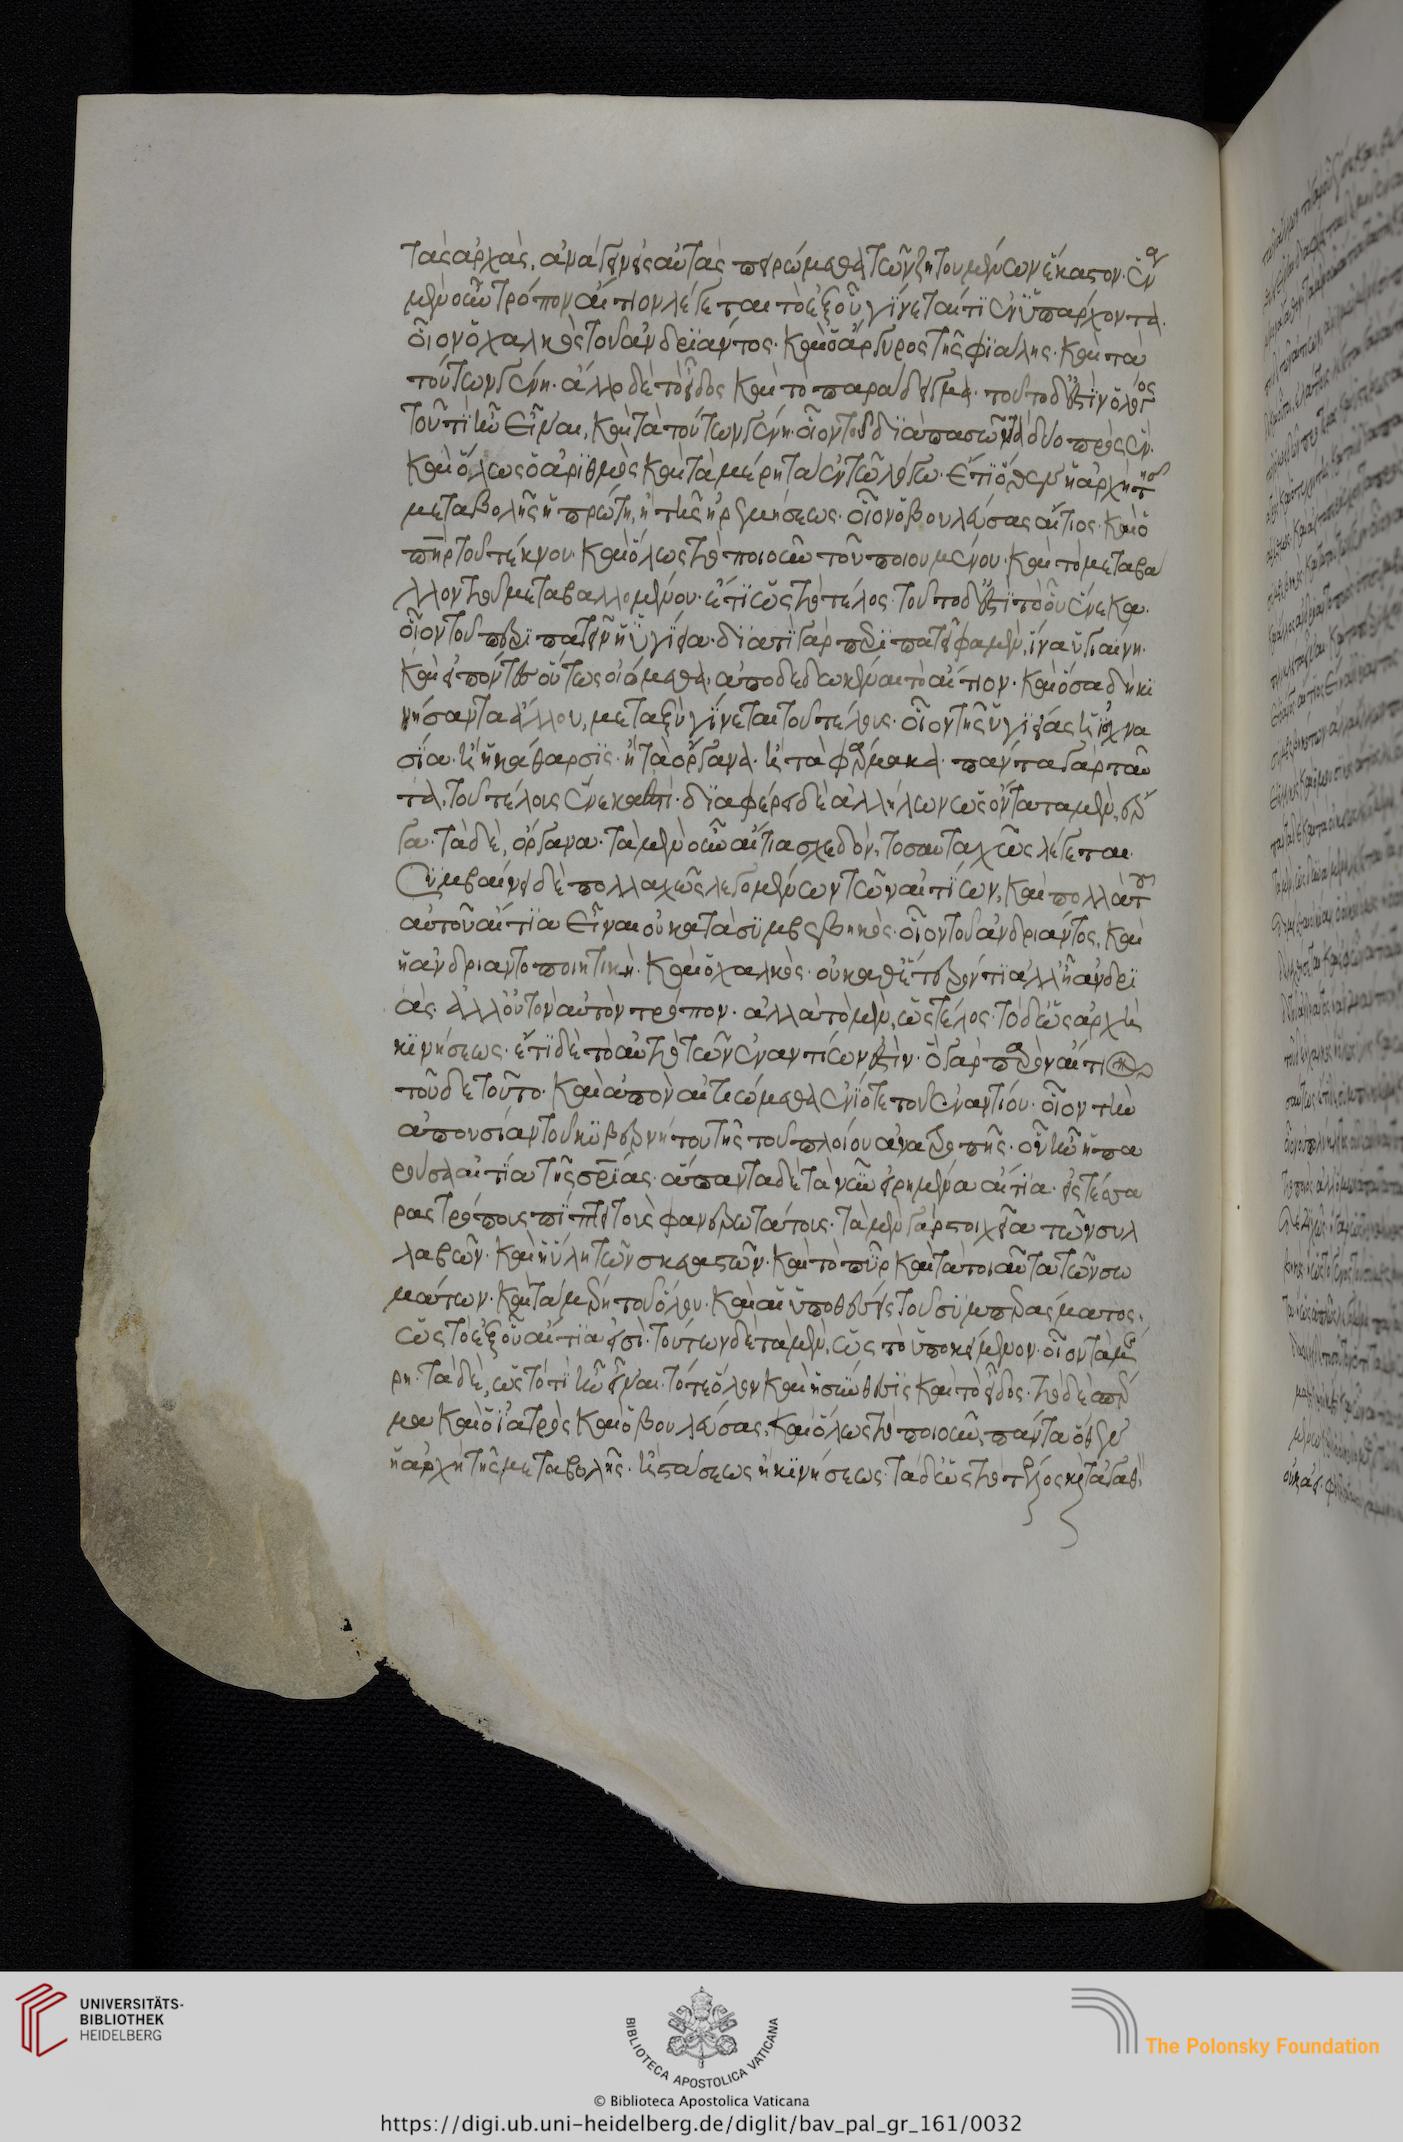 τὰς ἀρχὰς, ἀνάγειν εἰς αὐτὰς πειρώμεθα τῶν ζητουμένων ἕκαστον. ἕνα
μὲν οὖν τρόπον αἴτιον λέγεται τὸ ἐξ οὗ γίνεταί τι ἐνυπάρχοντα.
οἷον ὁ χαλκὸς τοῦ ἀνδριάντος. καὶ ὁ ἄργυρος τῆς φιάλης. καὶ τὰ
τούτων γένη. ἄλλο δὲ τὸ εἶδος καὶ τὸ παράδειγμα. τοῦτο δ' ἐστὶν ὁ λόγος
τοῦ τί ἦν εἶναι, καὶ τὰ τούτων γένη. οἷον τοῦ διὰ πασῶν τὰ δύο πρὸς ἕν.
καὶ ὅλως ὁ ἀριθμὸς καὶ τὰ μέρη τὰ ἐν τῷ λόγῳ. ἔτι ὅθεν ἡ ἀρχὴ τῆς
μεταβολῆς ἡ πρώτη, ἢ τῆς ἠρεμήσεως. οἷον ὁ βουλεύσας αἴτιος. καὶ ὁ
πηρ τοῦ τέκνου. καὶ ὅλως τὸ ποιοῦν τοῦ ποιουμένου. καὶ τὸ μεταβά
λλον τοῦ μεταβαλλομένου. ἔτι ὡς τὸ τέλος. τοῦτο δ' ἐστὶ τὸ οὗ ἕνεκα.
οἷον τοῦ περιπατεῖν ἡ ὑγίεια. διατί γὰρ περιπατεῖ φαμὲν, ἵνα ὑγιαίνῃ.
καὶ εἰπόντες οὕτως οἰόμεθα ἀποδεδωκέναι τὸ αἴτιον. καὶ ὅσα δὴ κι
νήσαντα ἄλλου, μεταξὺ γίνεται τοῦ τέλους. οἷον τῆς ὑγιείας ἡ ἰσχνα
σία. ἢ ἡ κάθαρσις. ἢ τὰ ὄργανα. ἢ τὰ φάρμακα. πάντα γὰρ ταῦ
τα, τοῦ τέλους ἕνεκά ἐστι. διαφέρει δὲ ἀλλήλων ὡς ὄντα τὰ μὲν, ἔρ
γα. τὰ δὲ, ὄργανα. τὰ μὲν οὖν αἴτια σχεδὸν, τοσαυταχῶς λέγεται.
Συμβαίνει δὲ πολλαχῶς λεγομένων τῶν αἰτίων, καὶ πολλὰ τοῦ
αὐτοῦ αἴτια εἶναι οὐ κατὰ συμβεβηκός. οἷον τοῦ ἀνδριάντος, καὶ
ἡ ἀνδριαντοποιητικὴ. καὶ ὁ χαλκὸς. οὐ καθ' ἕτερόν τι ἀλλ' ἢ ἀνδρι
άς. ἀλλ' οὐ τὸν αὐτὸν τρόπον. ἀλλὰ τὸ μὲν, ὡς τέλος. τὸ δ' ὡς ἀρχὴ
κινήσεως. ἔτι δὲ τὸ αὐτὸ τῶν ἐναντίων ἐστίν. ὃ γὰρ παρὸν αἴτιον
τοῦδε τοῦτο. καὶ ἀπὸν αἰτιώμεθα ἐνίοτε τοῦ ἐναντίου. οἷον τὴν
ἀπουσίαν τοῦ κυβερνήτου τῆς τοῦ πλοίου ἀνατροπῆς. οὗ ἦν ἡ πα
ρουσία αἰτία τῆς σρίας. ἅπαντα δὲ τὰ νῦν εἰρημένα αἴτια. εἰς τέσσα
ρας τρόπους πίπτει τοὺς φανερωτάτους. τὰ μὲν γὰρ στοιχεῖα τῶν συλ
λαβῶν. καὶ ἡ ὕλη τῶν σκευαστῶν. καὶ τὸ πῦρ καὶ τὰ τοιαῦτα τῶν σω
μάτων. καὶ τὰ μέρη τοῦ ὅλου. καὶ αἱ ὑποθέσεις τοῦ συμπεράσματος.
ὡς τὸ ἐξ οὗ αἴτιά εἰσι. τούτων δὲ τὰ μὲν, ὡς τὸ ὑποκείμενον. οἷον τὰ μέ
ρη. τὰ δὲ, ὡς τὸ τί ἦν εἶναι. τό τε ὅλον καὶ ἡ σύνθεσις καὶ τὸ εἶδος. τὸ δὲ σπέρ
μα καὶ ὁ ἰατρὸς καὶ ὁ βουλεύσας, καὶ ὅλως τὸ ποιοῦν, πάντα ὅθεν
ἡ ἀρχὴ τῆς μεταβολῆς. ἢ στάσεως ἢ κινήσεως. τὰ δ' ὡς τὸ τέλος καὶ τἀγαθ
UNIVERSITÄTS-
BIBLIOTHEK
HEIDELBERG
BIBLIOTECA APOSTOLICA VATICANA
The Polonsky Foundation
© Biblioteca Apostolica Vaticana
https://digi.ub.uni-heidelberg.de/diglit/bav_pal_gr_161/0032